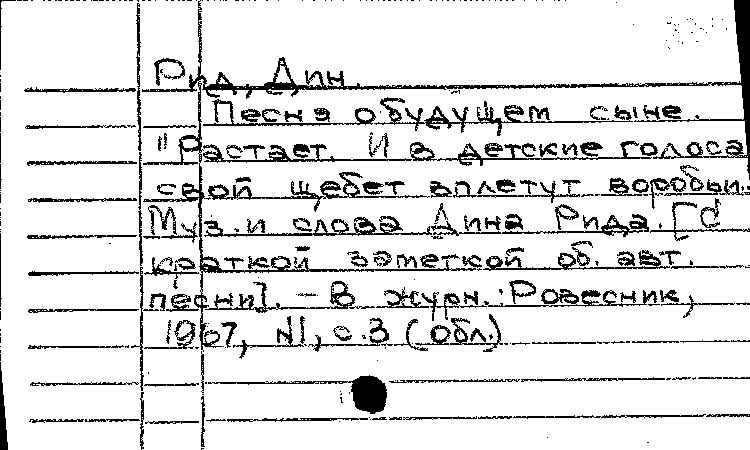 Рид, Дин.
Песня о будущем сыне.
"Растает. И в детские голоса
свой щебет вплетут воробьи..
Муз. и слова Дина Рида. [С
краткой заметкой об. авт.
песни]. – В журн.: Ровесник,
1967, N1, с.3 (обл.)